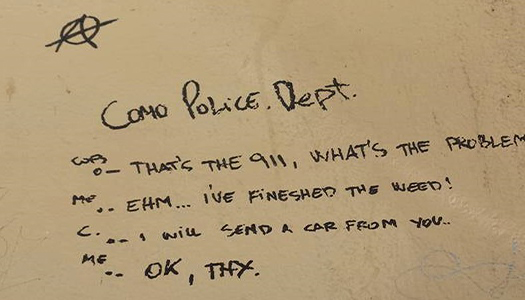 Como Police. Dept.
COPS o- THAT'S THE 911, WHAT'S THE PROBLEM
ME .. EHM... I'VE FINESHED THE WEED!
C. .. I WILL SEND A CAR FROM YOU..
ME .. OK, THX.